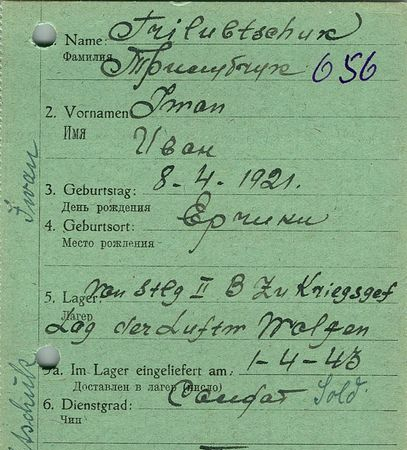 Name: Trilubtschuk
Фамилия Трилубчук 656
2. Vornamen Iwan
Имя Иван
3. Geburtstag: 8-4-1921.
День рождения
4. Geburtsort: Ерчики
Место рождения
5. Lager: Von Stlg II B Zu Kriegsgef
Лагер
Lag der Luftw Wolgen
5a. Im Lager eingeliefert am: 1-4-43
Доставлен в лагер (число)
6. Dienstgrad: Солдат Sold
Чин
Iwan